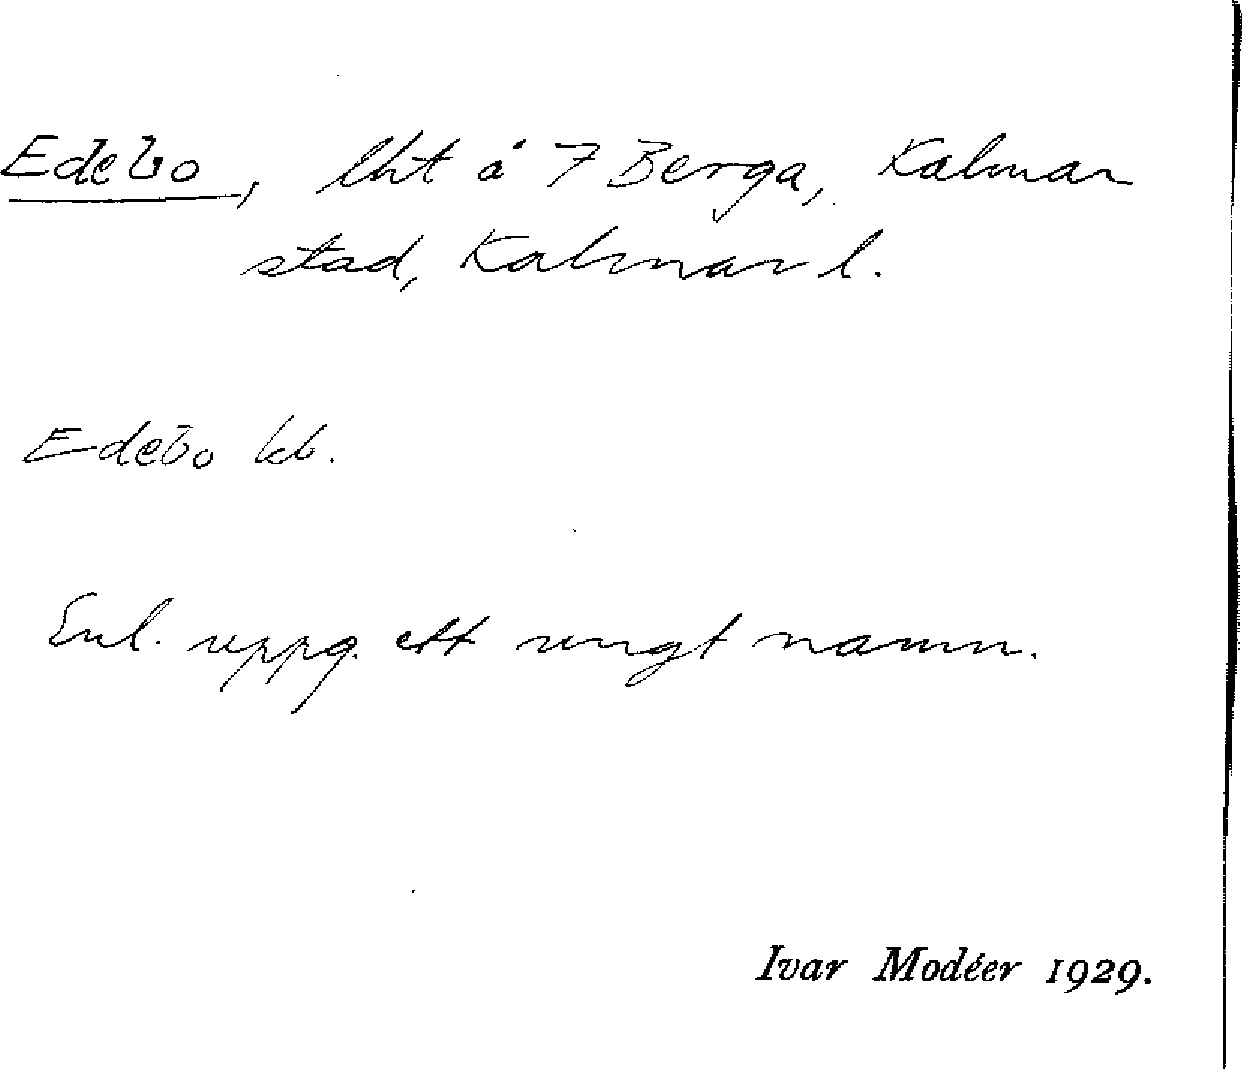 Edebo, lht å 7 Berga, Kalmar
stad, Kalmar l.
Edebo kb.
Enl. uppg. ett ungt namn.
Ivar Modéer 1929.